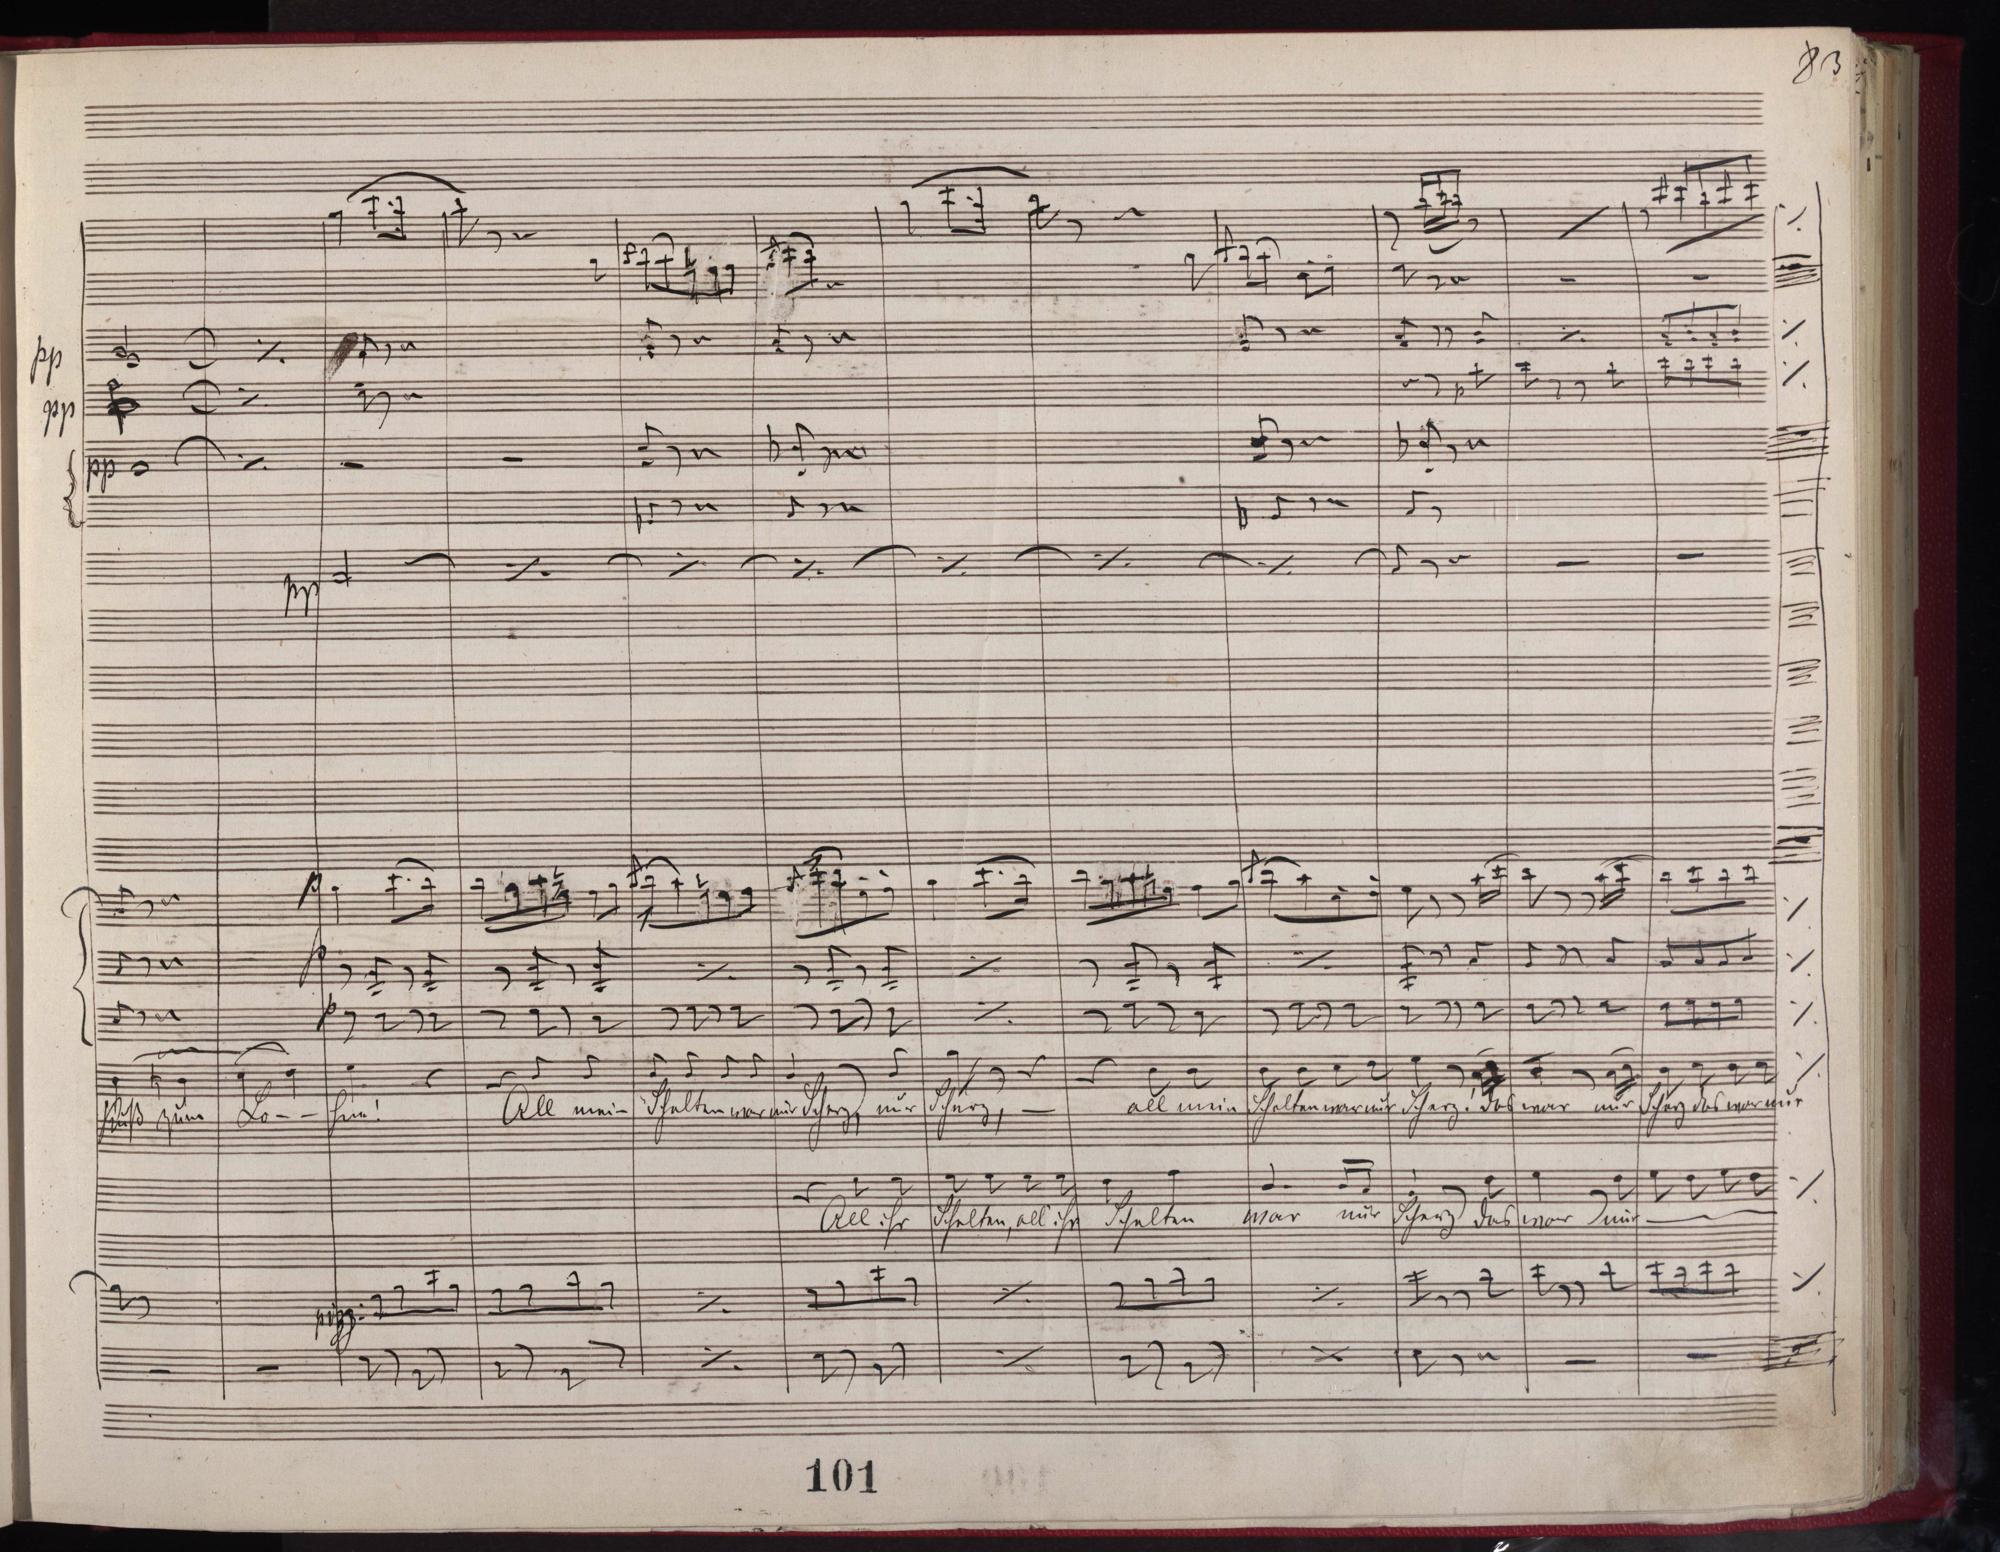 83
pp
pp
pp
pp
p
p
p
Kuß zum Lo - - hne! All mein Schelten war nur Scherz, nur Scherz, — all mein Schelten war nur Scherz! das war nur Scherz das war nur
All ihr Schelten, all ihr Schelten war nur Scherz das war nur
pizz:
101